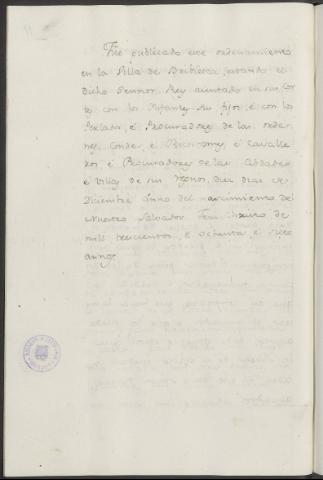 Fue publicado este ordenamiento
en la Villa de Bribiesca estando el
dicho Sennor Rey aiuntado en sus Cor
tes con los Infantes sus fijos, é con los
Perlados, é Procuradores de las orde
nes, Condes, é Ricos omes, é Cavalle
ros, é Procuradores de las Cibdades
é Villas de sus regnos, diez dias de
Diciembre anno del nascimiento del
Nuestro Salvador Jesu Christo de
mill trescientos, é ochenta, é siete
annos